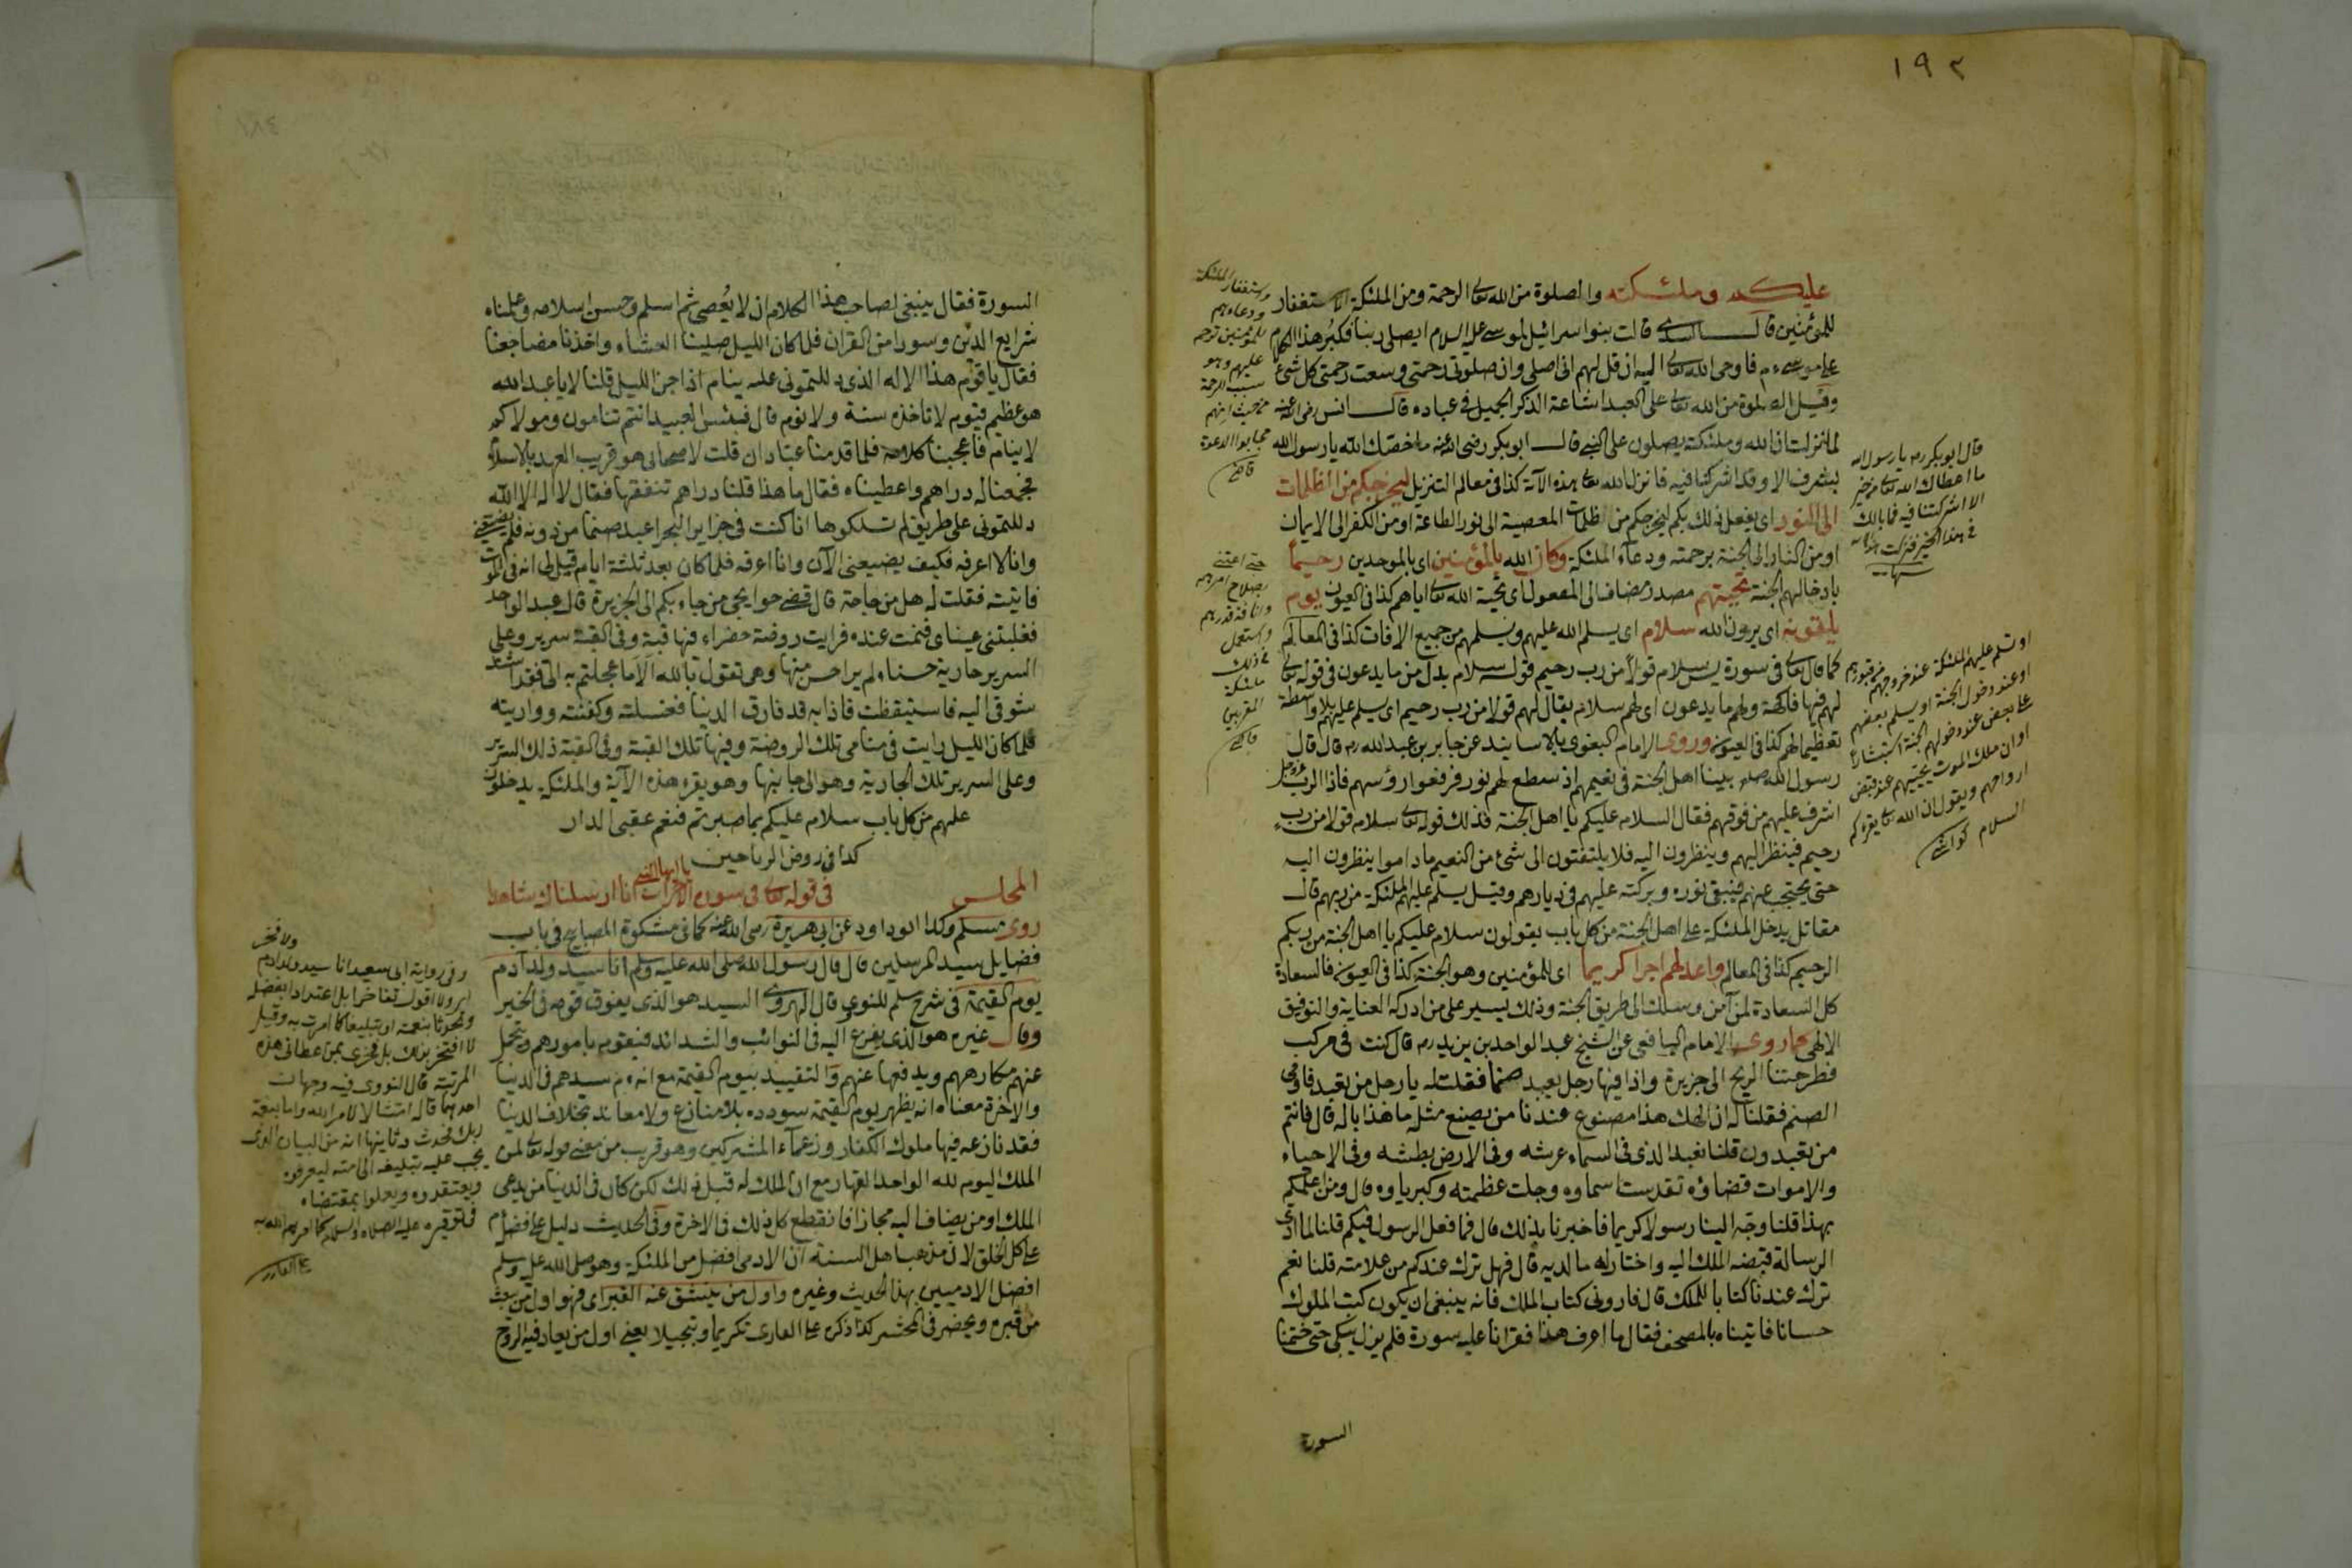 ١٩٢
عليكم وملئكته والصلوة من الله تعالى الرحمة ومن الملئكة الاستغفار
للمؤمنين قال السدى قالت بنوا اسرائيل لموسى عليه السلام ايصلى ربنا فكبر هذا الكلام
على موسى ءم فاوحى الله تعالى اليه ان قل لهم انى اصلى وان صلوتى رحمتى وسعت رحمتى كل شئ
وقيل الصلوة من الله تعالى على العبد اشاعة الذكر الجميل فى عباده قال انس رضى الله عنه
لما نزلت ان الله وملئكته يصلون على النبى قال ابو بكر رضى الله عنه ما خصك الله يا رسول الله
بشرف الا وقد اشركنا فيه فانزل الله تعالى هذه الآية كذا فى معالم التنزيل ليخرجكم من الظلمات
الى النور اى يفعل ذلك بكم ليخرجكم من ظلمات المعصية الى نور الطاعة او من الكفر الى الايمان
او من النار الى الجنة برحمته ودعاء الملئكة وكان الله بالمؤمنين اى بالموحدين رحيما
بادخالهم الجنة تحيتهم مصدر مضاف الى المفعول اى تحية الله تعالى اياهم كذا فى العيون يوم
يلقونه اى يرون الله سلام اى يسلم الله عليهم ويسلمهم من جميع الافات كذا فى المعالم
كما قال تعالى فى سورة يس سلام قولا من رب رحيم قوله سلام بدل من ما يدعون فى قوله تعالى
لهم فيها فاكهة ولهم ما يدعون اى لهم سلام يقال لهم قولا من رب رحيم اى يسلم عليهم بلا واسطة
تعظيما لهم كذا فى العيون وروى الامام البغوى بالاسانيد عن جابر بن عبد الله رم قال قال
رسول الله صلم بينا اهل الجنة فى نعيمهم اذ سطع لهم نور فرفعوا رؤسهم فاذا الرب عز وجل
اشرف عليهم من فوقهم فقال السلام عليكم يا اهل الجنة فذلك قوله تعالى سلام قولا من رب
رحيم فينظر اليهم وينظرون اليه فلا يلتفتون الى شئ من النعيم ماداموا ينظرون اليه
حتى يحتجب عنهم فيبقى نوره وبركته عليهم فى ديارهم وقيل يسلم عليهم الملئكة من ربهم قال
مقاتل يدخل الملئكة على اهل الجنة من كل باب يقولون سلام عليكم يا اهل الجنة من ربكم
الرحيم كذا فى المعالم واعد لهم اجرا كريما اى للمؤمنين وهو الجنة كذا فى العيون فالسعادة
كل السعادة لمن آمن وسلك الى طريق الجنة وذلك يسير على من ادركه العناية والتوفيق
الالهى كما روى الامام اليافعى عن الشيخ عبد الواحد بن يزيد رم قال كنت فى مركب
فطرحتنا الريح الى جزيرة واذا فيها رجل يعبد صنما فقلت له يا رجل من تعبد فاومى
الصنم فقلنا له ان الهك هذا مصنوع عندنا من يصنع مثله ما هذا باله قال فانتم
من تعبدون قلنا نعبد الذى فى السماء عرشه وفى الارض بطشه وفى الاحياء
والاموات قضاؤه تقدست اسماوه وجلت عظمته وكبرياوه قال ومن اعلمكم
بهذا قلنا وجه الينا رسولا كريما فاخبرنا بذلك قال فما فعل الرسول فيكم قلنا لما ادى
الرسالة قبضه الملك اليه واختار له ما لديه قال فهل ترك عندكم من علامته قلنا نعم
ترك عندنا كتابا للملك قال فارونى كتاب الملك فانه ينبغى ان يكون كتب الملوك
حسانا فاتيناه بالمصحف فقال ما اعرف هذا فقرانا عليه سورة فلم يزل يبكى حتى ختمنا
السورة
واستغفار الملئكة
ودعاءهم
للمؤمنين ترحم
عليهم وهو
سبب الرحمة
من حيث انهم
مجابوا الدعوة
قاضى
قال ابو بكر رم يا رسول الله
ما اعطاك الله تعالى من خير
الا اشركتنا فيه فما بالك
فى هذا الخير فنزلت
حتى اعتنى
بصلاح امرهم
قدرهم
واستعمل
فى ذلك
ملئكته
المقربين
قاضى
او تسلم عليهم الملئكة عند خروجهم من قبورهم
او عند دخول الجنة او يسلم بعضهم
على بعض عند دخولهم الجنة استبشارا
او ان ملك الموت يحييهم عند قبض
ارواحهم ويقول ان الله تعالى يقرءكم
السلام كواشى
السورة فقال ينبغى لصاحب هذا الكلام ان لا يعصى ثم اسلم وحسن اسلامه وعلمناه
شرايع الدين وسورا من القران فلما كان الليل صلينا العشاء واخذنا مضاجعنا
فقال يا قوم هذا الاله الذى دللتمونى عليه ينام اذا جن الليل قلنا لا يا عبد الله
هو عظيم قيوم لا تاخذه سنة ولا نوم قال فبئس العبيد انتم تنامون ومولاكم
لا ينام فاعجبنا كلامه فلما قدمنا عبادان قلت لاصحابى هو قريب العهد بالاسلام
فجمعنا له دراهم واعطيناه فقال ما هذا قلنا دراهم تنفقها فقال لا اله الا الله
دللتمونى على طريق لم تسلكوها انا كنت فى جزاير البحر اعبد صنما من دونه فلم يضيعنى
وانا لا اعرفه فكيف يضيعنى الآن وانا اعرفه فلما كان بعد ثلثة ايام قيل لى انه فى الموت
فاتيته فقلت له هل من حاجة قال قضى حوايجى من جاء بكم الى الجزيرة قال عبد الواحد
فغلبتنى عيناى فنمت عنده فرايت روضة خضراء فيها قبة وفى القبة سرير وعلى
السرير جارية حسناء لم ير احسن منها وهى تقول بالله الا ما عجلتم به الى فقد اشتد
شوقى اليه فاستيقظت فاذا به قد فارق الدنيا فغسلته وكفنته وواريته
فلما كان الليل رايت فى منامى تلك الروضة وفيها تلك القبة وفى القبة ذلك السرير
وعلى السرير تلك الجارية وهو الى جانبها وهو يقرء هذه الآية والملئكة يدخلون
عليهم من كل باب سلام عليكم بما صبرتم فنعم عقبى الدار
كذا فى روض الرياحين
المجلس فى قوله تعالى فى سورة الاحزاب يا ايها النبى انا ارسلناك شاهدا
روى مسلم وكذا ابو داود عن ابى هريرة رضى الله عنه كما فى مشكوة المصابيح فى باب
فضايل سيد المرسلين قال قال رسول الله صلى الله عليه وسلم انا سيد ولد آدم
يوم القيمة فى شرح مسلم للنووى قال الهروى السيد هو الذى يفوق قومه فى الخير
وقال غيره هو الذى يفزع اليه فى النوائب والشدائد فيقوم بامورهم ويتحمل
عنهم مكارههم ويدفعها عنهم والتقييد بيوم القيمة مع انه ءم سيدهم فى الدنيا
والاخرة معناه انه يظهر يوم القيمة سودده بلا منازع ولا معاند بخلاف الدنيا
فقد نازعه فيها ملوك الكفار وزعماء المشركين وهو قريب من معنى قوله تعالى لمن
الملك اليوم لله الواحد القهار مع ان الملك له قبل ذلك لكن كان فى الدنيا من يدعى
الملك او من يضاف اليه مجازا فانقطع كل ذلك فى الاخرة وفى الحديث دليل على فضله ءم
على كل الخلق لان مذهب اهل السنة ان الادمى افضل من الملئكة وهو صلى الله عليه وسلم
افضل الادميين بهذا الحديث وغيره واول من ينشق عنه القبر اى فهو اول من يبعث
من قبره ويحضر فى المحشر كذا ذكره على القارى تكريما وتبجيلا يعنى اول من يعاد فيه الروح
ولا فخر
وفى رواية ابى سعيد انا سيد ولد ادم
اى ولا اقوله تفاخرا بل اعتدادا بفضله
وتحدثا بنعمته او تبليغا كما امرت به وقيل
لا افتخر بذلك بل فخرى بمن اعطانى هذه
المرتبة قال النووى فيه وجهان
احدهما قاله امتثالا لامر الله واما بنعمة
ربك فحدث وثانيهما انه من البيان الذى
يجب عليه تبليغه الى امته ليعرفوه
ويعتقدوه ويعملوا بمقتضاه
فى توقيره عليه الصلاة والسلام كما امرهم الله به
على القارى